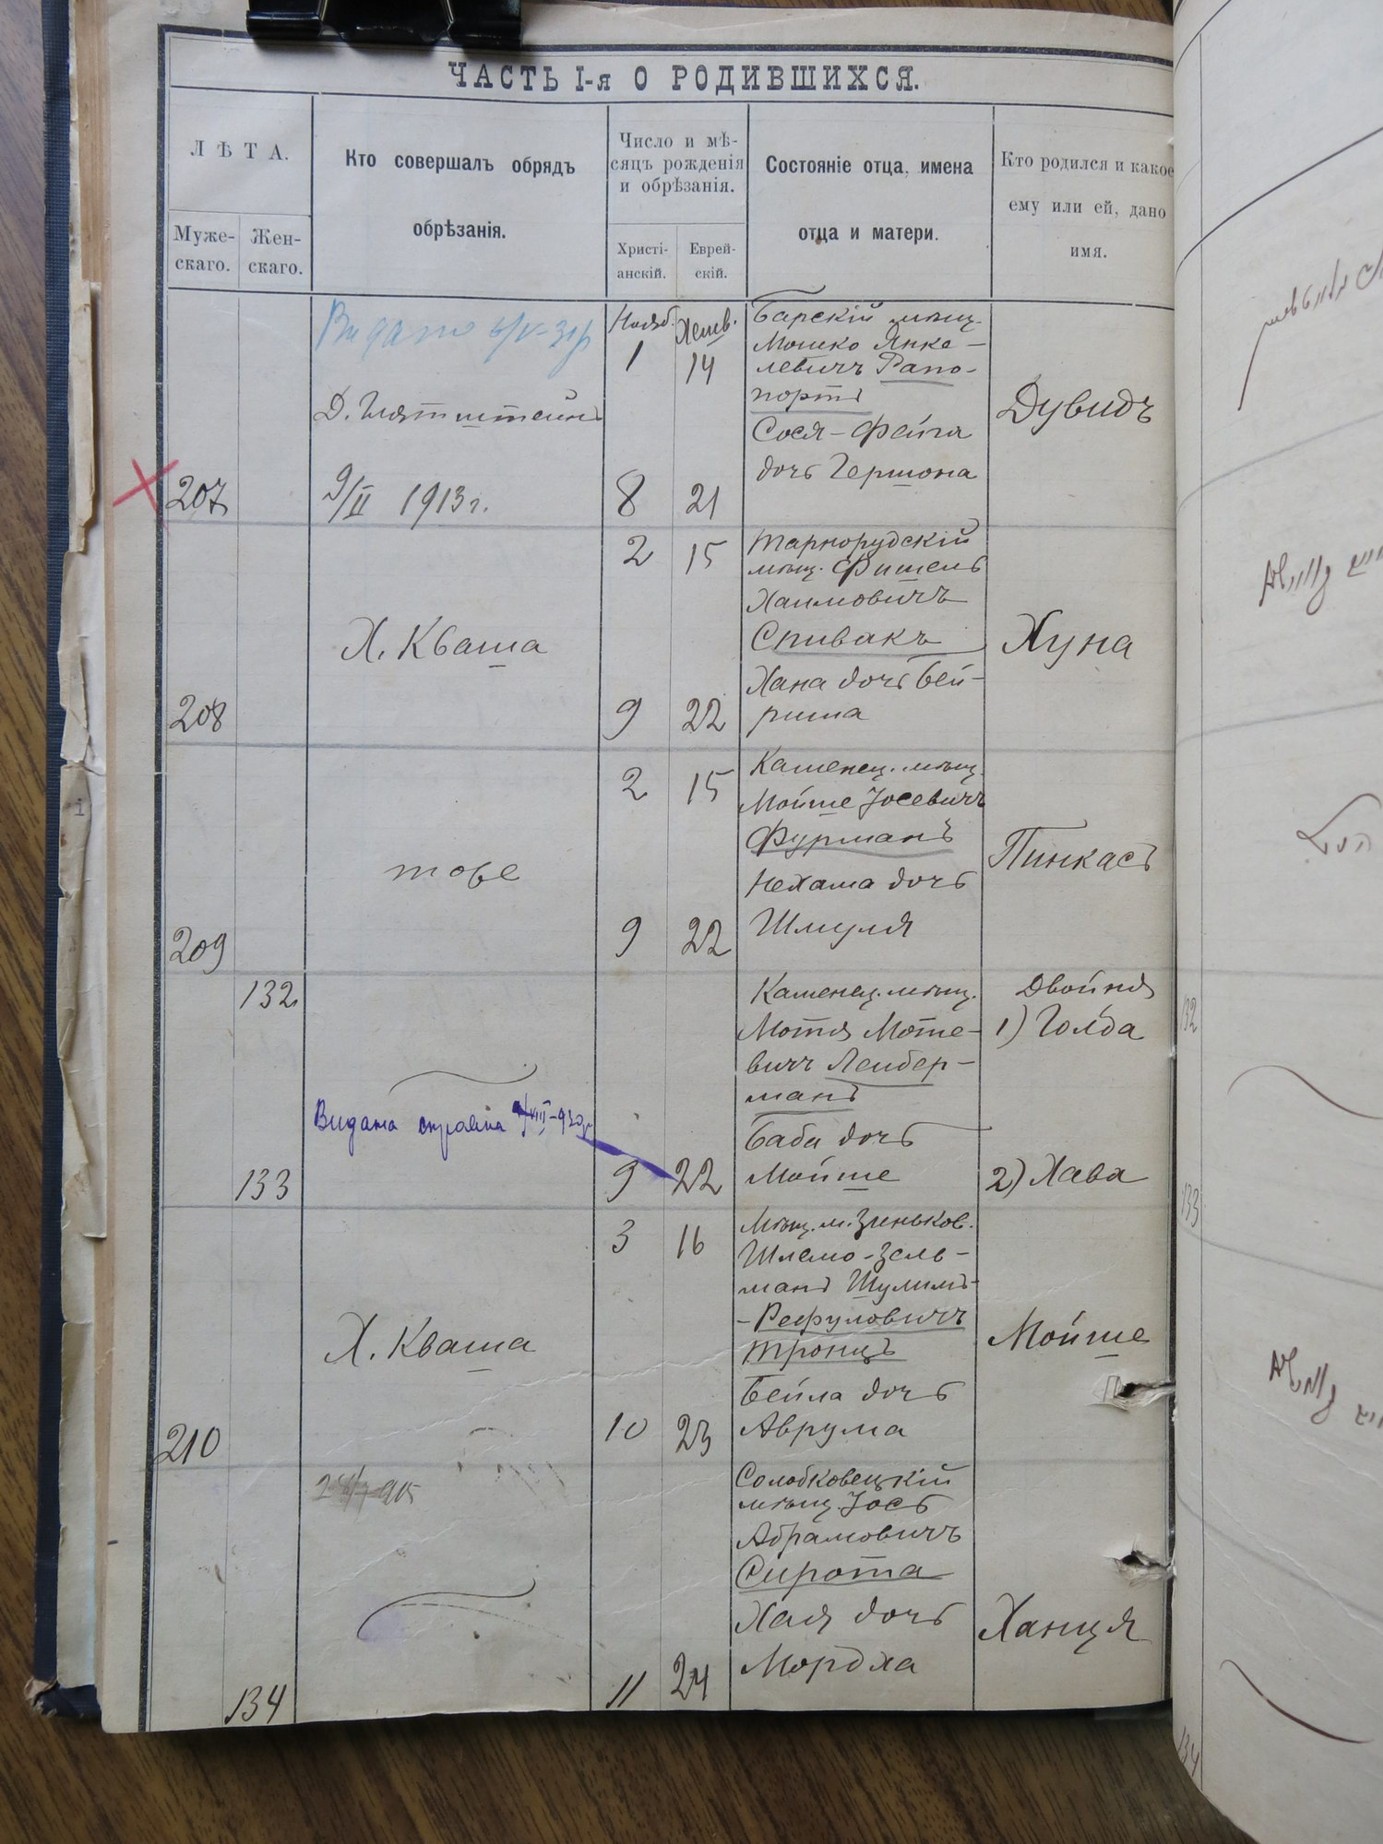 ЧАСТЬ I-я О РОДИВШИХСЯ.
ЛѢТА.
Муже-
скаго.
Жен-
скаго.
Кто совершалъ обрядъ
обрѣзанія.
Число и мѣ-
сяцъ рожденія
и обрѣзанія.
Христі-
анскій.
Еврей-
скій.
Состояніе отца, имена
отца и матери.
Кто родился и какое
ему или ей, дано
имя.
207
Видано
9/II 1913 г.
Нояб.
1
8
Хешв.
14
21
Барскій мѣщ.
Мошко Янке-
левичъ Рапо-
портъ
Сося-Фейга
дочь Гершона
Дувидъ
208
Х. Кваша
2
9
15
22
Тарнорудскій
мѣщ. Фишель
Хаимовичъ
Спивакъ
Хана дочь Бей-
риша
Хуна
209
тоже
2
9
15
22
Каменец. мѣщ.
Мойше Іосевичъ
Фурманъ
Нехама дочь
Шмуля
Пинкасъ
132
133
Видана справка
9
22
Каменец. мѣщ.
Мотя Моте-
вичъ Лейбер-
манъ
Баба дочь
Мойше
Двойня
1) Голда
2) Хава
210
Х. Кваша
3
10
16
23
Мѣщ. м. Зиньков.
Шлемо-Зель-
манъ Шулимъ-
-Рефуловичъ
Тронцъ
Бейла дочь
Аврума
Мойше
134
11
24
Солобковецкій
мѣщ. Іось
Абрамовичъ
Сирота
Хая дочь
Мордха
Ханця
132
133
134